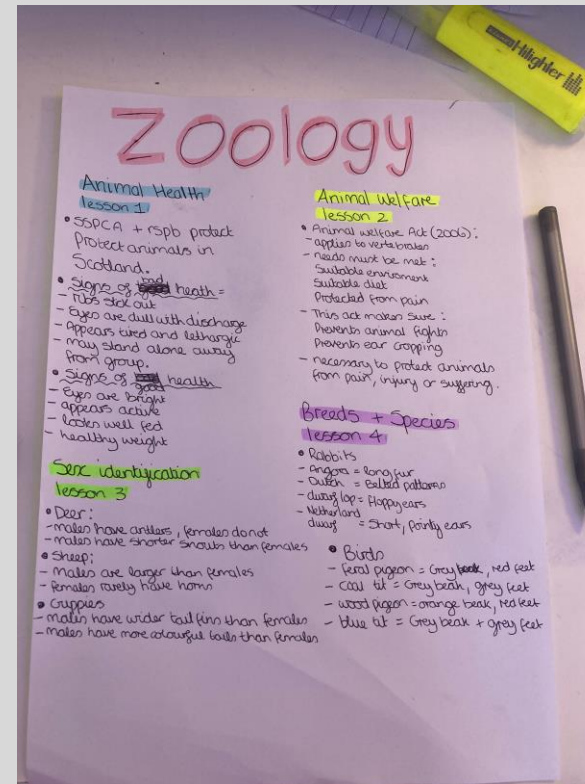 Hilighter
Zoology
Animal Health
lesson 1
• SSPCA + rspb protect
Protect animals in
Scotland.
• Signs of bad heath =
- ribs stick out
- Eyes are dull with discharge
- Appears tired and lethargic
- may stand alone away
from group.
• Signs of good health
- Eyes are bright
- appears active
- looks well fed
- healthy weight
Sex identification
lesson 3
• Deer:
- males have antlers, females do not
- males have shorter snouts than females
• Sheep:
- males are larger than females
- females rarely have horns
• Guppies
- males have wider tail fins than females
- males have more colourful tails than females
Animal welfare
lesson 2
• Animal welfare Act (2006):
- applies to vertebrates
- needs must be met:
Suitable enviroment
Suitable diet
Protected from pain
- This act makes sure:
Prevents animal fights
Prevents ear cropping
- necessary to protect animals
from pain, injury or suffering.
Breeds + Species
lesson 4
• Rabbits
- Angora = long fur
- Dutch = Belted patterns
- dwarf lop = Floppy ears
- Netherland
dwarf = Short, pointy ears
• Birds
- feral pigeon = Grey beak, red feet
- coal tit = Grey beak, grey feet
- wood pigeon = orange beak, red feet
- blue tit = Grey beak + grey feet